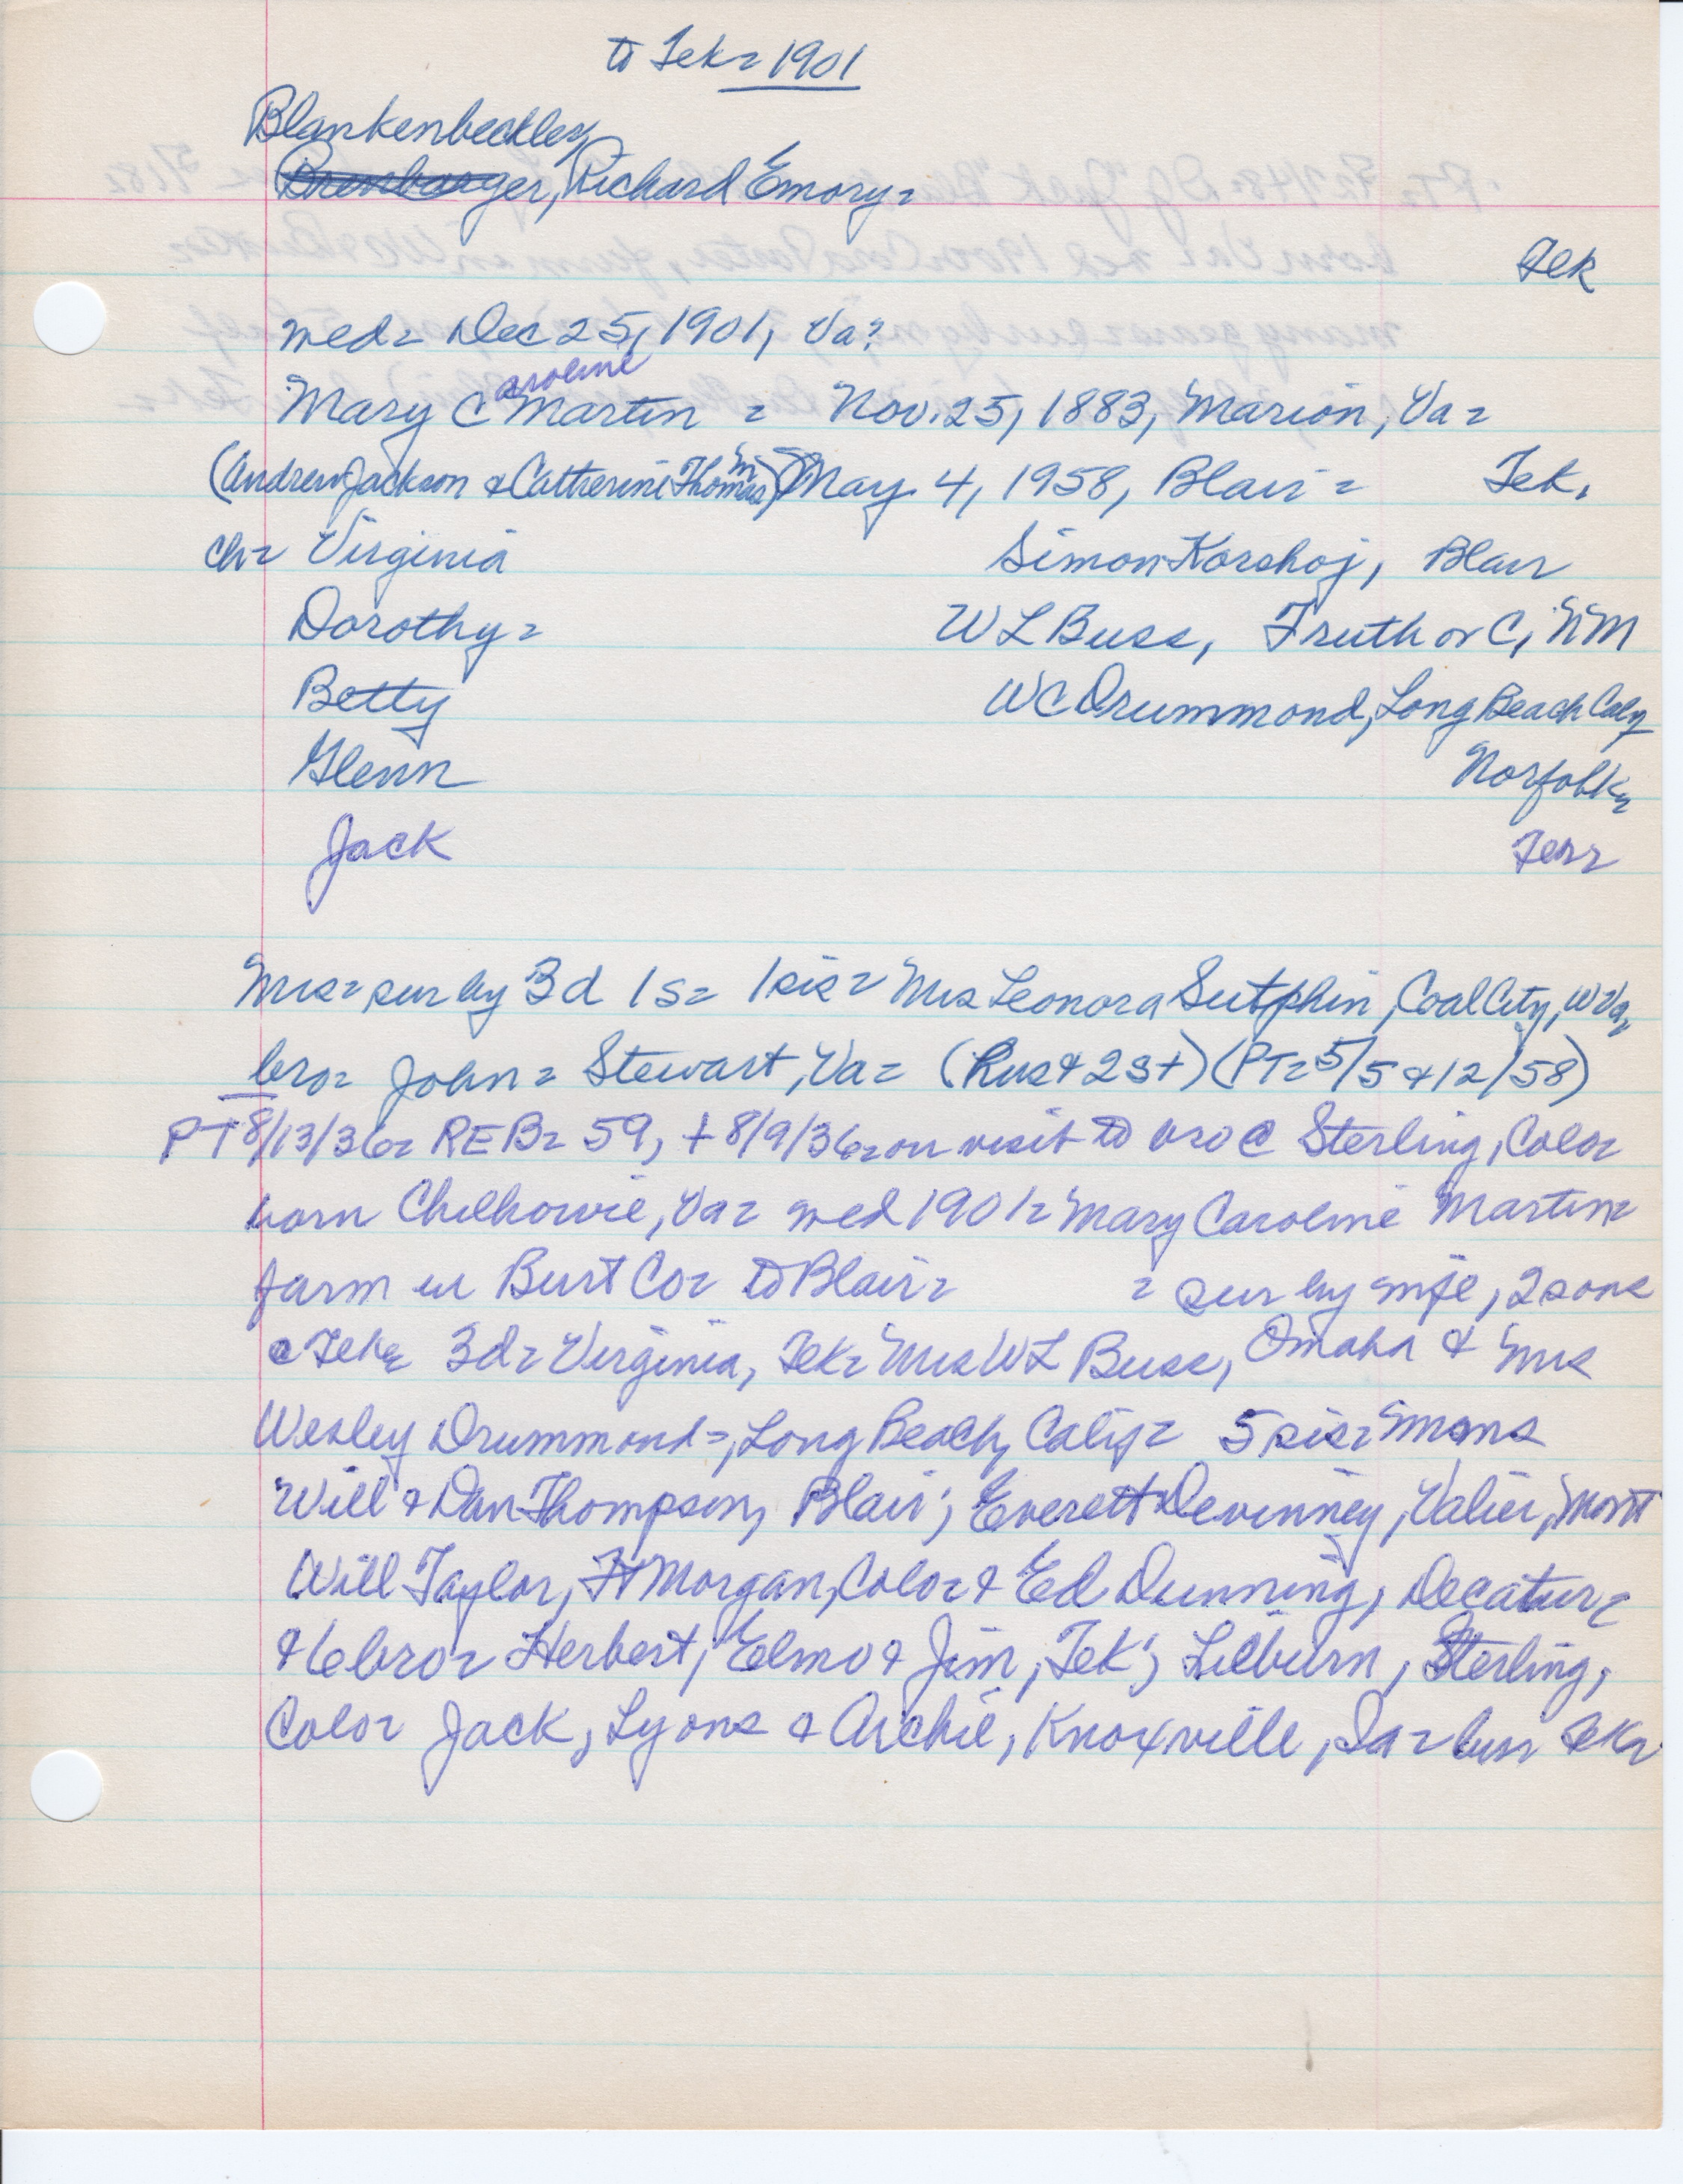 to Tek= 1901
Blankenbeckley,
Brenbarger, Richard Emory=
Tek
med= Dec 25, 1901, Va?
aroline
Mary C Martin = Nov. 25, 1883, Marion, Va=
(Andrew Jackson & Catherine Thomas M) May 4, 1958, Blair= Tek.
Ch= Virginia Simon Korshoj, Blair
Dorothy= W L Buss, Truth or C, NM
Betty W C Drummond, Long Beach Calif
Glenn Norfolk=
Jack Tek=
Mrs= sur by 3d 1s= 1sis= Mrs Leonora Sutphin, Coal City, W Va,
bro= John= Stewart, Va= (Rus+ 2st) (PT= 5/5 & 12/58)
PT 8/13/36= REB= 59, + 8/9/36= on visit to bro @ Sterling, Colo=
born Chilhowie, Va= med 1901= Mary Caroline Martin=
farm in Burt Co= to Blair= = sur by wife, 2 sons
@ Tek= 3d= Virginia, Tek= Mrs W L Buss, Omaha & Mrs
Wesley Drummond=, Long Beach, Calif= 5 sis= Mmms
Will & Dan Thompson, Blair; Everett Devinney, Valier, Mont
Will Taylor, Ft Morgan, Colo= & Ed Dunning, Decatur=
& 6 bro= Herbert, Elmo & Jim, Tek; Lilburn, Sterling,
Colo= Jack, Lyons & Archie, Knoxville, Ia= bur Tek=